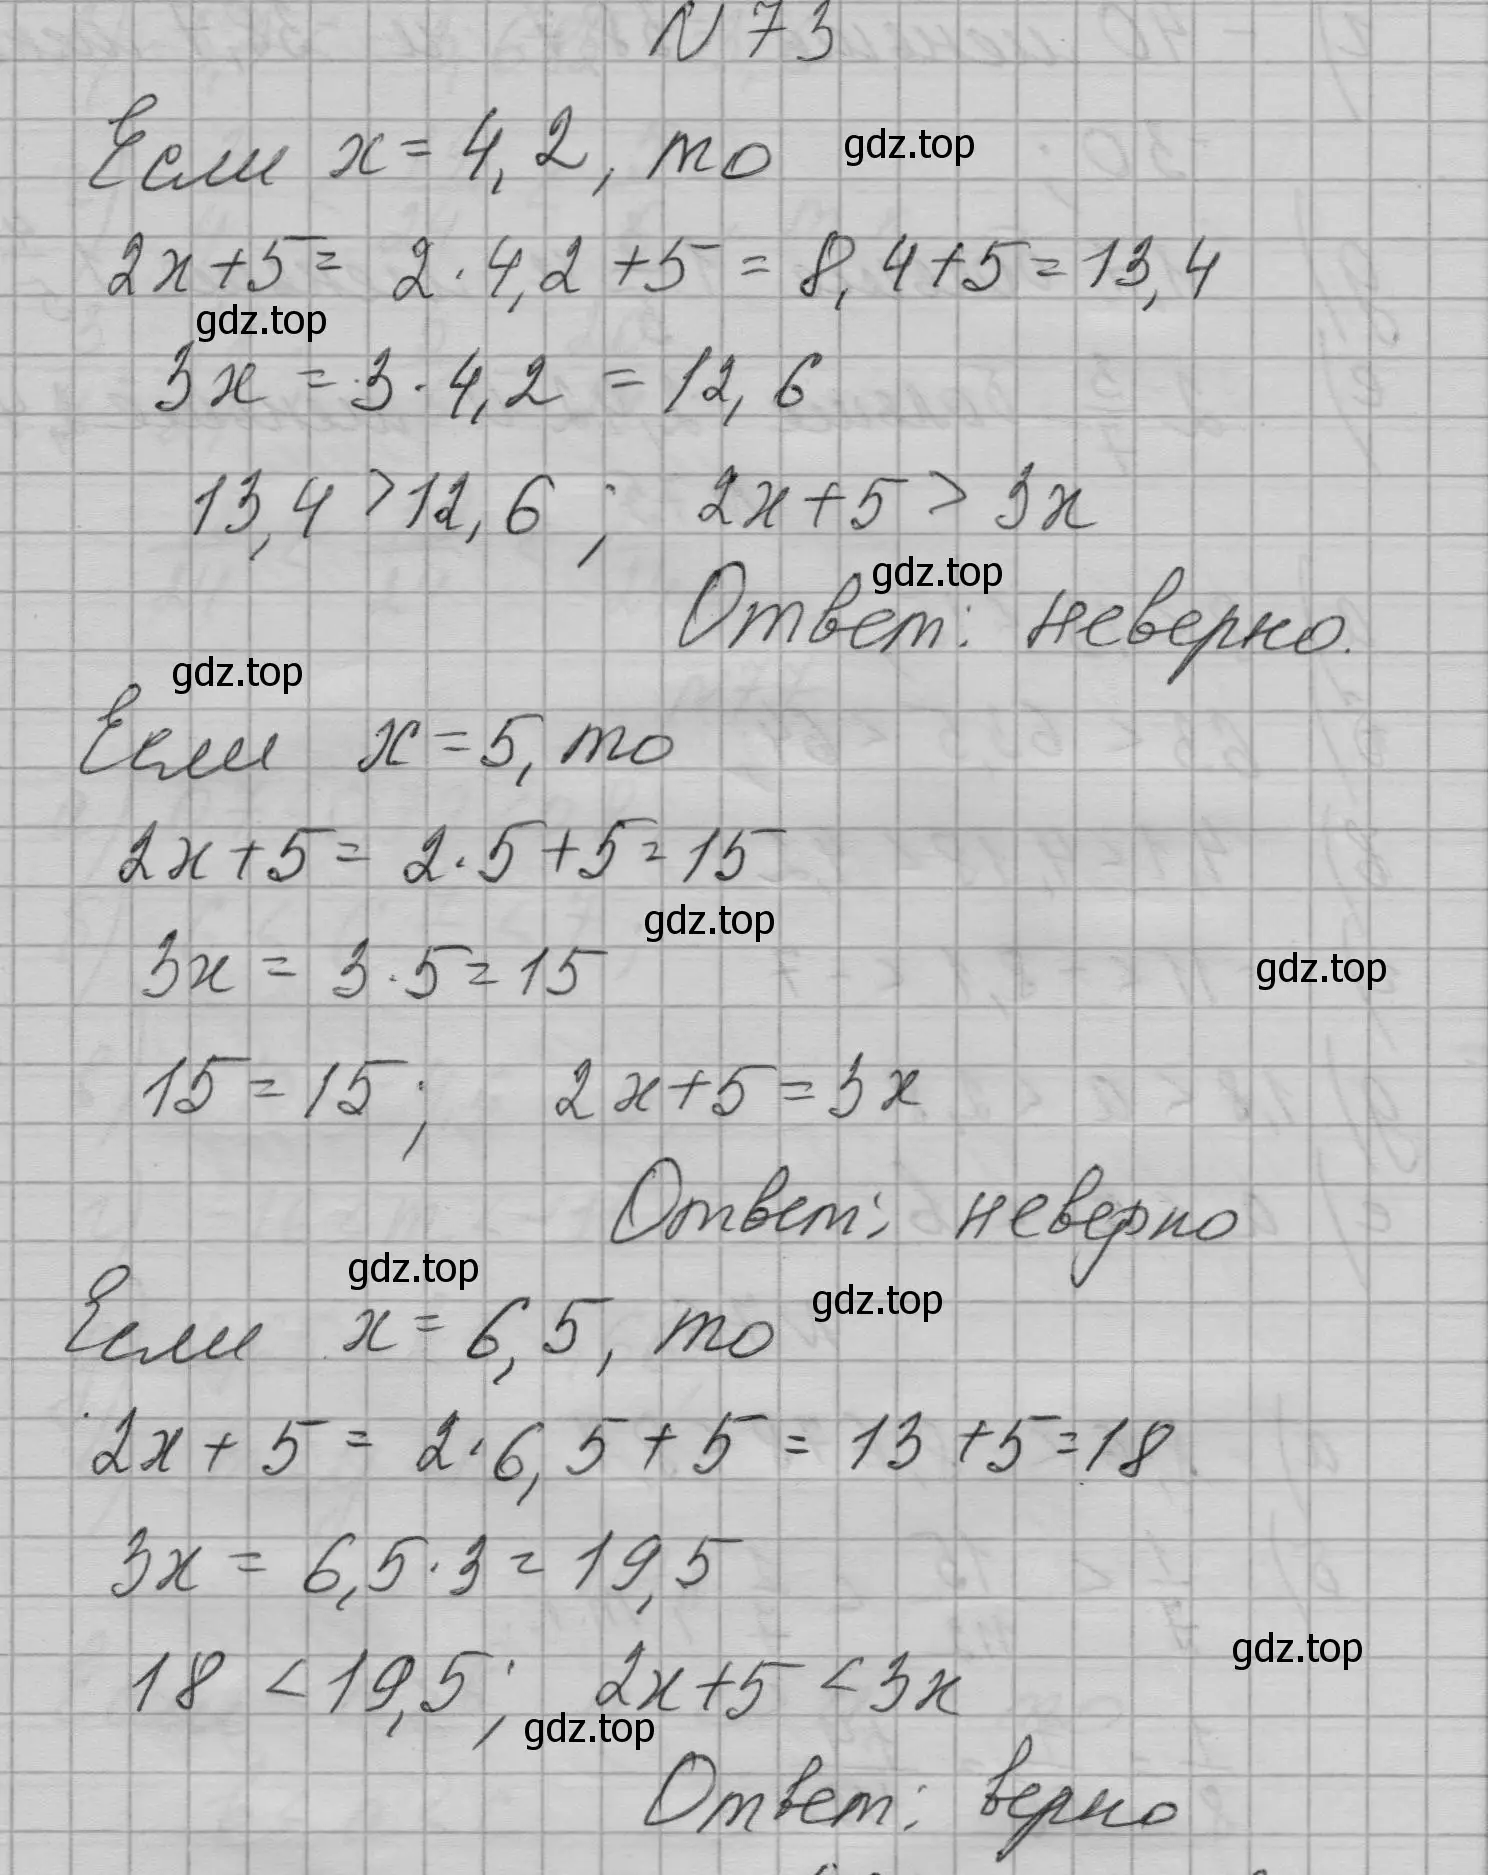 N 73
Если x = 4,2, то gdz.top
2x+5 = 2·4,2+5 = 8,4+5=13,4
gdz.top
3x = 3·4,2 = 12,6
13,4 > 12,6; 2x+5 > 3x
gdz.top
Ответ: неверно.
gdz.top
Если x=5, то
2x+5 = 2·5+5=15
gdz.top
3x = 3·5=15
gdz.top
15=15; 2x+5=3x
Ответ: неверно
gdz.top
gdz.top
Если x = 6,5, то
2x+5 = 2·6,5+5 = 13+5=18
3x = 6,5·3=19,5
gdz.top
18 < 19,5; 2x+5 < 3x
gdz.top
Ответ: верно